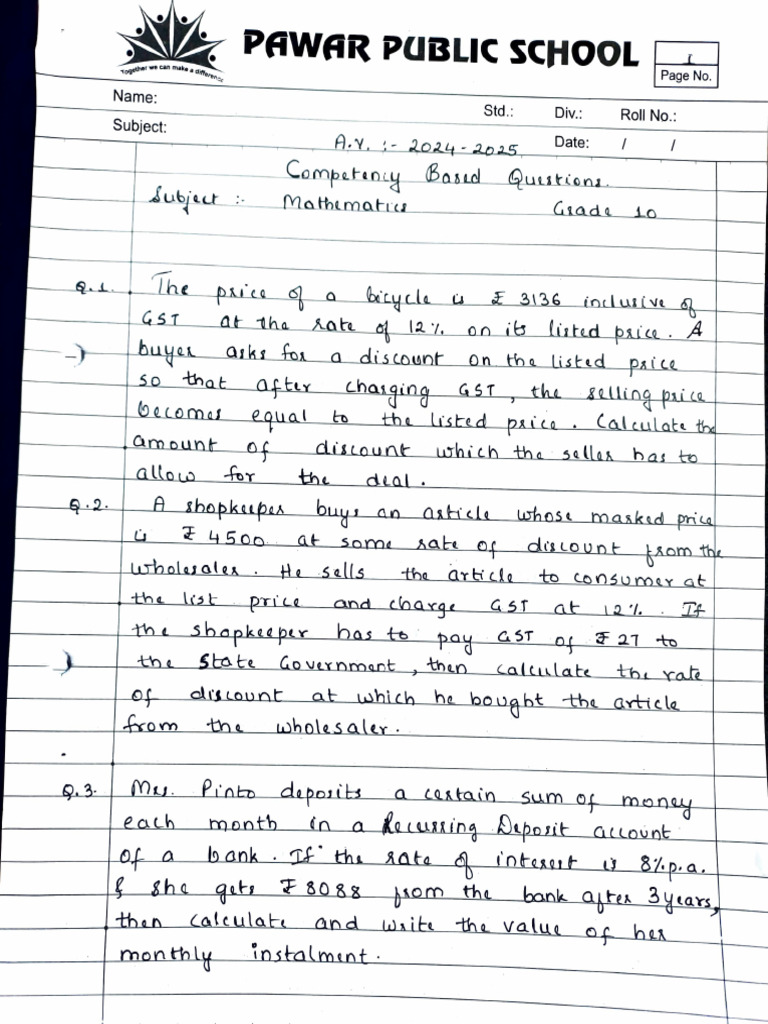 PAWAR PUBLIC SCHOOL
Together we can make a difference
1
Page No.
Name:
Std.: Div.: Roll No.:
Subject:
A.Y. :- 2024-2025
Date: / /
Competency Based Questions.
Subject :- Mathematics Grade 10
Q.1. The price of a bicycle is ₹ 3136 inclusive of
GST at the rate of 12% on its listed price. A
buyer asks for a discount on the listed price
so that after charging GST, the selling price
becomes equal to the listed price. Calculate the
amount of discount which the seller has to
allow for the deal.
Q.2. A shopkeeper buys an article whose marked price
is ₹ 4500 at some rate of discount from the
wholesaler. He sells the article to consumer at
the list price and charge GST at 12%. If
the shopkeeper has to pay GST of ₹ 27 to
the State Government, then calculate the rate
of discount at which he bought the article
from the wholesaler.
Q.3. Mrs. Pinto deposits a certain sum of money
each month in a Recurring Deposit account
of a bank. If the rate of interest is 8% p.a.
& she gets ₹ 8088 from the bank after 3 years,
then calculate and write the value of her
monthly instalment.